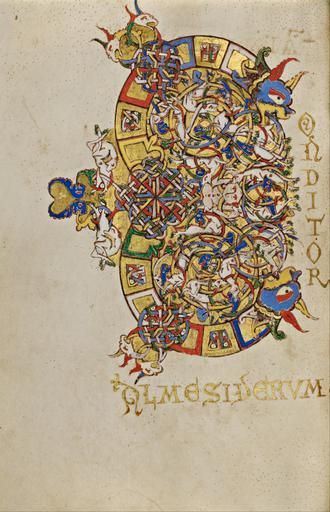 CONDITOR
ALMESIDERVM